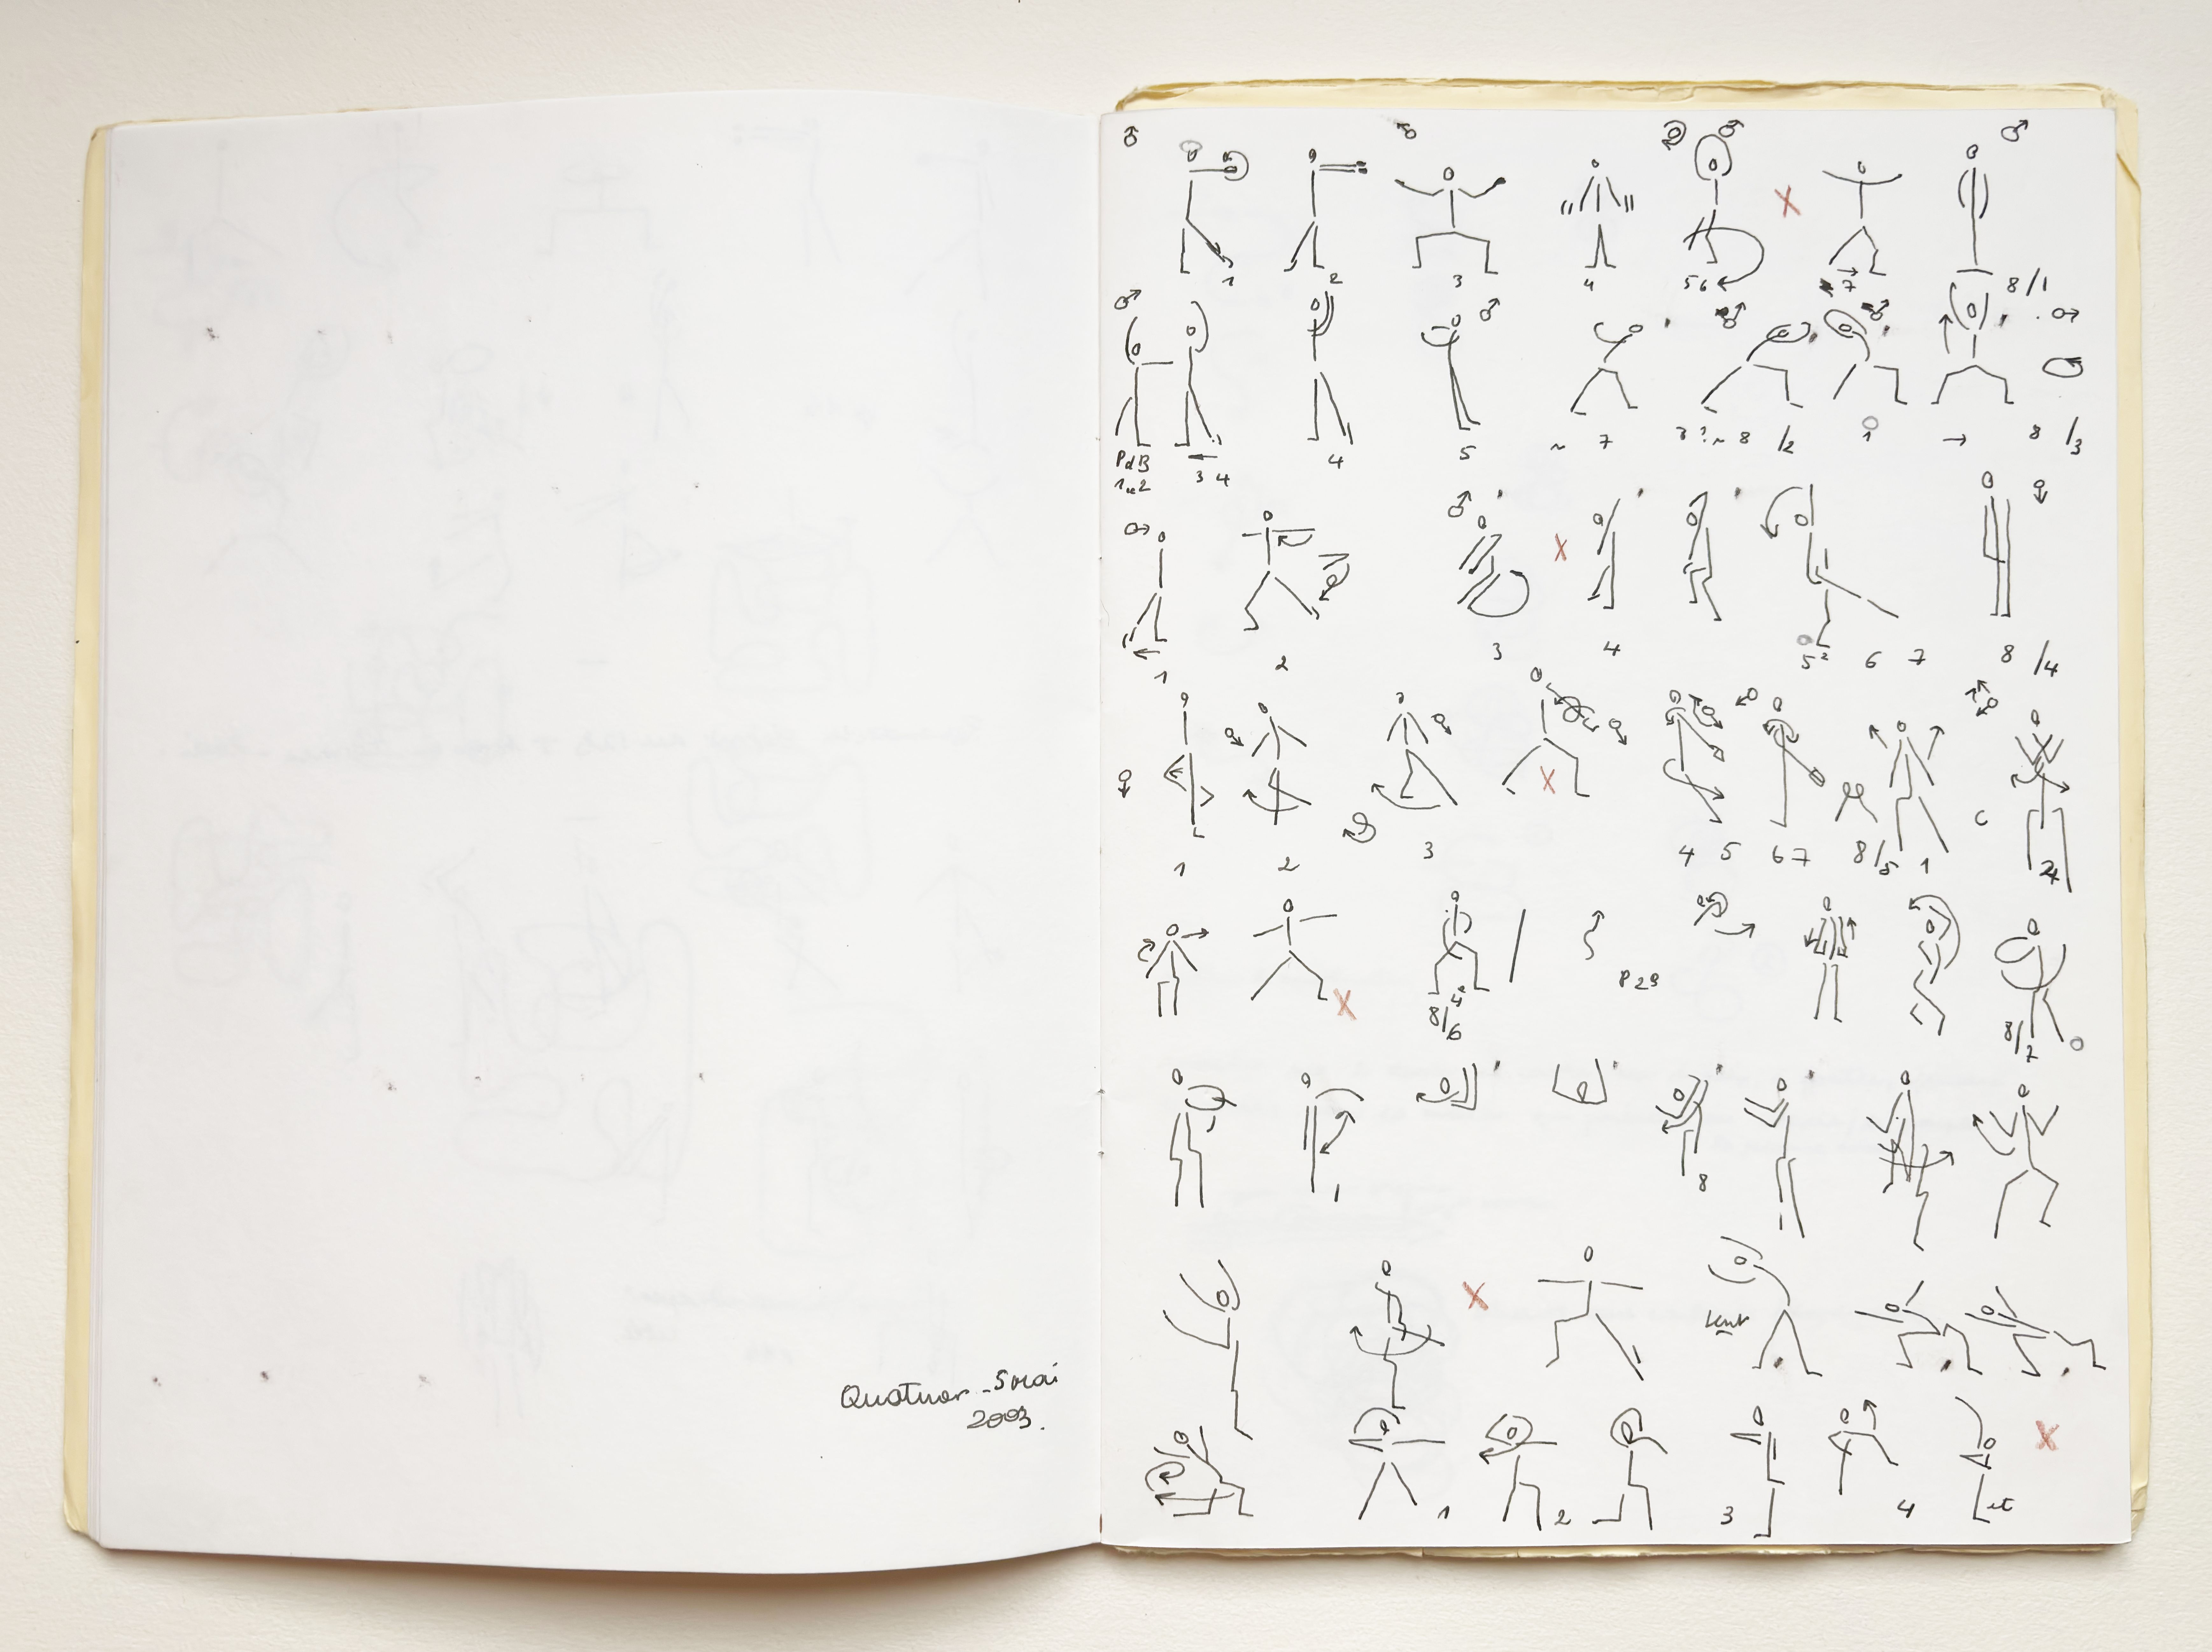 Quatuor - 5 mai
2003.
1 2 3 4 5 6 7 8/1
PdB
1 et 2 3 4 4 5 ~ 7 8 /2 1 8 /3
1 2 3 4 5 6 7 8 /4
1 2 3 4 5 6 7 8/5 1 2
8/6 P 29 8/7
1 8
lent
1 2 3 4 et